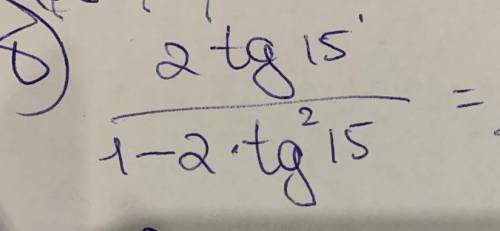 б) 2 tg 15
1-2·tg² 15 =